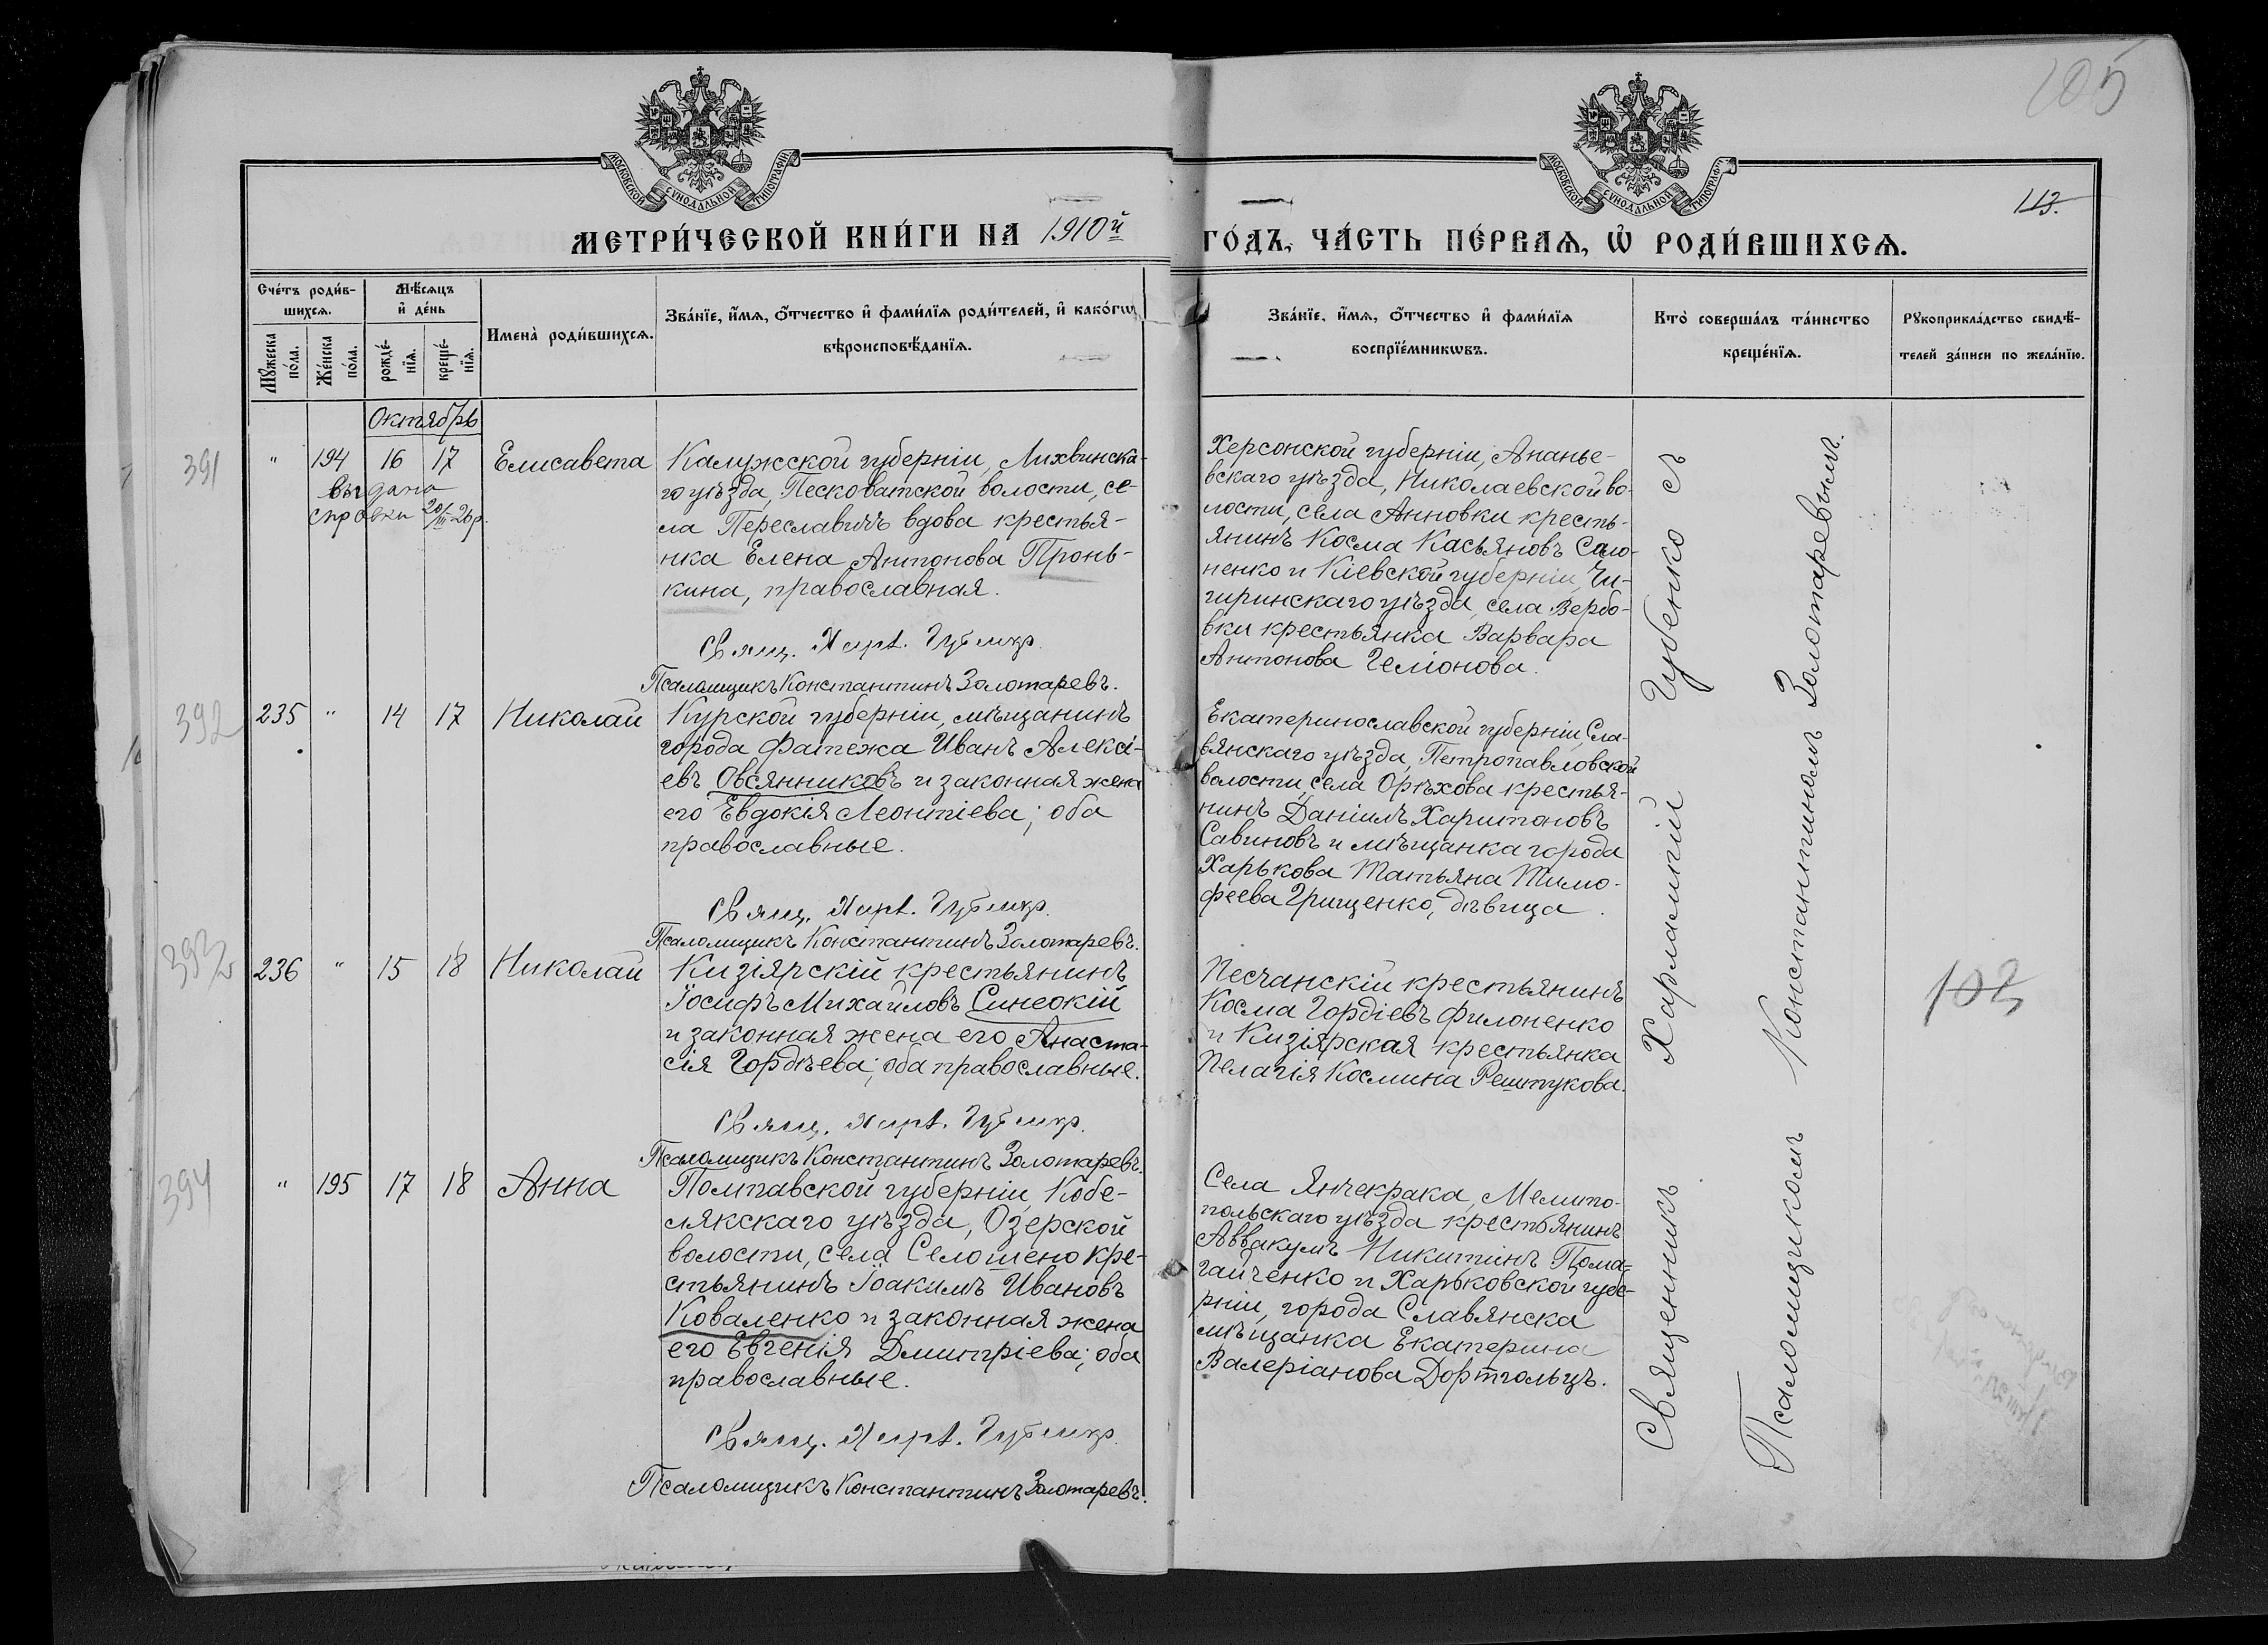 105
МОСКОВСКОЙ СѴНОДАЛЬНОЙ ТИПОГРАФІИ
МОСКОВСКОЙ СѴНОДАЛЬНОЙ ТИПОГРАФІИ
113.
МЕТРИ́ЧЕСКОЙ КНИ́ГИ НА 1910й
ГО́ДЪ, ЧА́СТЬ ПЕ́РВАѦ, Ѡ РОДИ́ВШИХСѦ.
Сче́тъ роди́в-
шихсѧ.
Мꙋ́жеска по́ла.
Же́нска по́ла.
Мѣ́сѧцъ
и҆ де́нь
рожде́-
нїѧ.
креще́-
нїѧ.
Имена̀ роди́вшихсѧ.
Зва́нїе, и҆́мѧ, о҆́тчество и҆ фами́лїѧ роди́телей, и҆ како́гѡ
вѣроисповѣ́данїѧ.
Зва́нїе, и҆́мѧ, о҆́тчество и҆ фами́лїѧ
воспрїе́мникѡвъ.
Кто̀ соверша́лъ та́инство
креще́нїѧ.
Рꙋкоприкла́дство свидѣ́-
телей за́писи по жела́нїю.
Октябрь
391
" 194 16 17 Елисавета
выдана
справки 20/III 26 р.
Калужской губерніи, Лихвинска-
го уѣзда, Песковатской волости, се-
ла Переславичъ вдова крестья-
нка Елена Антонова Пронь-
кина, православная.
Свящ. Харл. Губенко
Псаломщикъ Константинъ Золотаревъ.
Херсонской губерніи, Ананье-
вскаго уѣзда, Николаевской во-
лости, села Анновки кресть-
янинъ Косма Касьяновъ Сало-
ненко и Кіевской губерніи, Чи-
гиринскаго уѣзда, села Вербо-
вки крестьянка Варвара
Антонова Геліонова.
392
235 " 14 17 Николай
Курской губерніи, мѣщанинъ
города Фатежа Иванъ Алексі-
евъ Овсянниковъ и законная жена
его Евдокія Леонтіева; оба
православные.
Свящ. Харл. Губенко
Псаломщикъ Константинъ Золотаревъ.
Екатеринославской губерніи, Сла-
вянскаго уѣзда, Петропавловской
волости, села Орѣхова крестья-
нинъ Даніилъ Харитоновъ
Савиновъ и мѣщанка города
Харькова Татьяна Тимо-
феева Грищенко, дѣвица.
393
236 " 15 18 Николай
Кизіярскій крестьянинъ
Іосифъ Михайловъ Синеокій
и законная жена его Анаста-
сія Гордѣева; оба православные.
Свящ. Харл. Губенко
Псаломщикъ Константинъ Золотаревъ.
Песчанскій крестьянинъ
Косма Гордіевъ Филоненко
и Кизіярская крестьянка
Пелагія Космина Рештукова.
102
394
" 195 17 18 Анна
Полтавской губерніи, Кобе-
лякскаго уѣзда, Озерской
волости, села Селошено кре-
стьянинъ Іоакимъ Ивановъ
Коваленко и законная жена
его Евгенія Дмитріева; оба
православные.
Свящ. Харл. Губенко
Псаломщикъ Константинъ Золотаревъ.
Села Янчекрака, Мелито-
польскаго уѣзда крестьянинъ
Аввакумъ Никитинъ Пома-
гайченко и Харьковской губе-
рніи, города Славянска
мѣщанка Екатерина
Валеріанова Дортгольцъ.
Священникъ Харлампій Губенко съ
Псаломщикомъ Константиномъ Золотаревымъ.